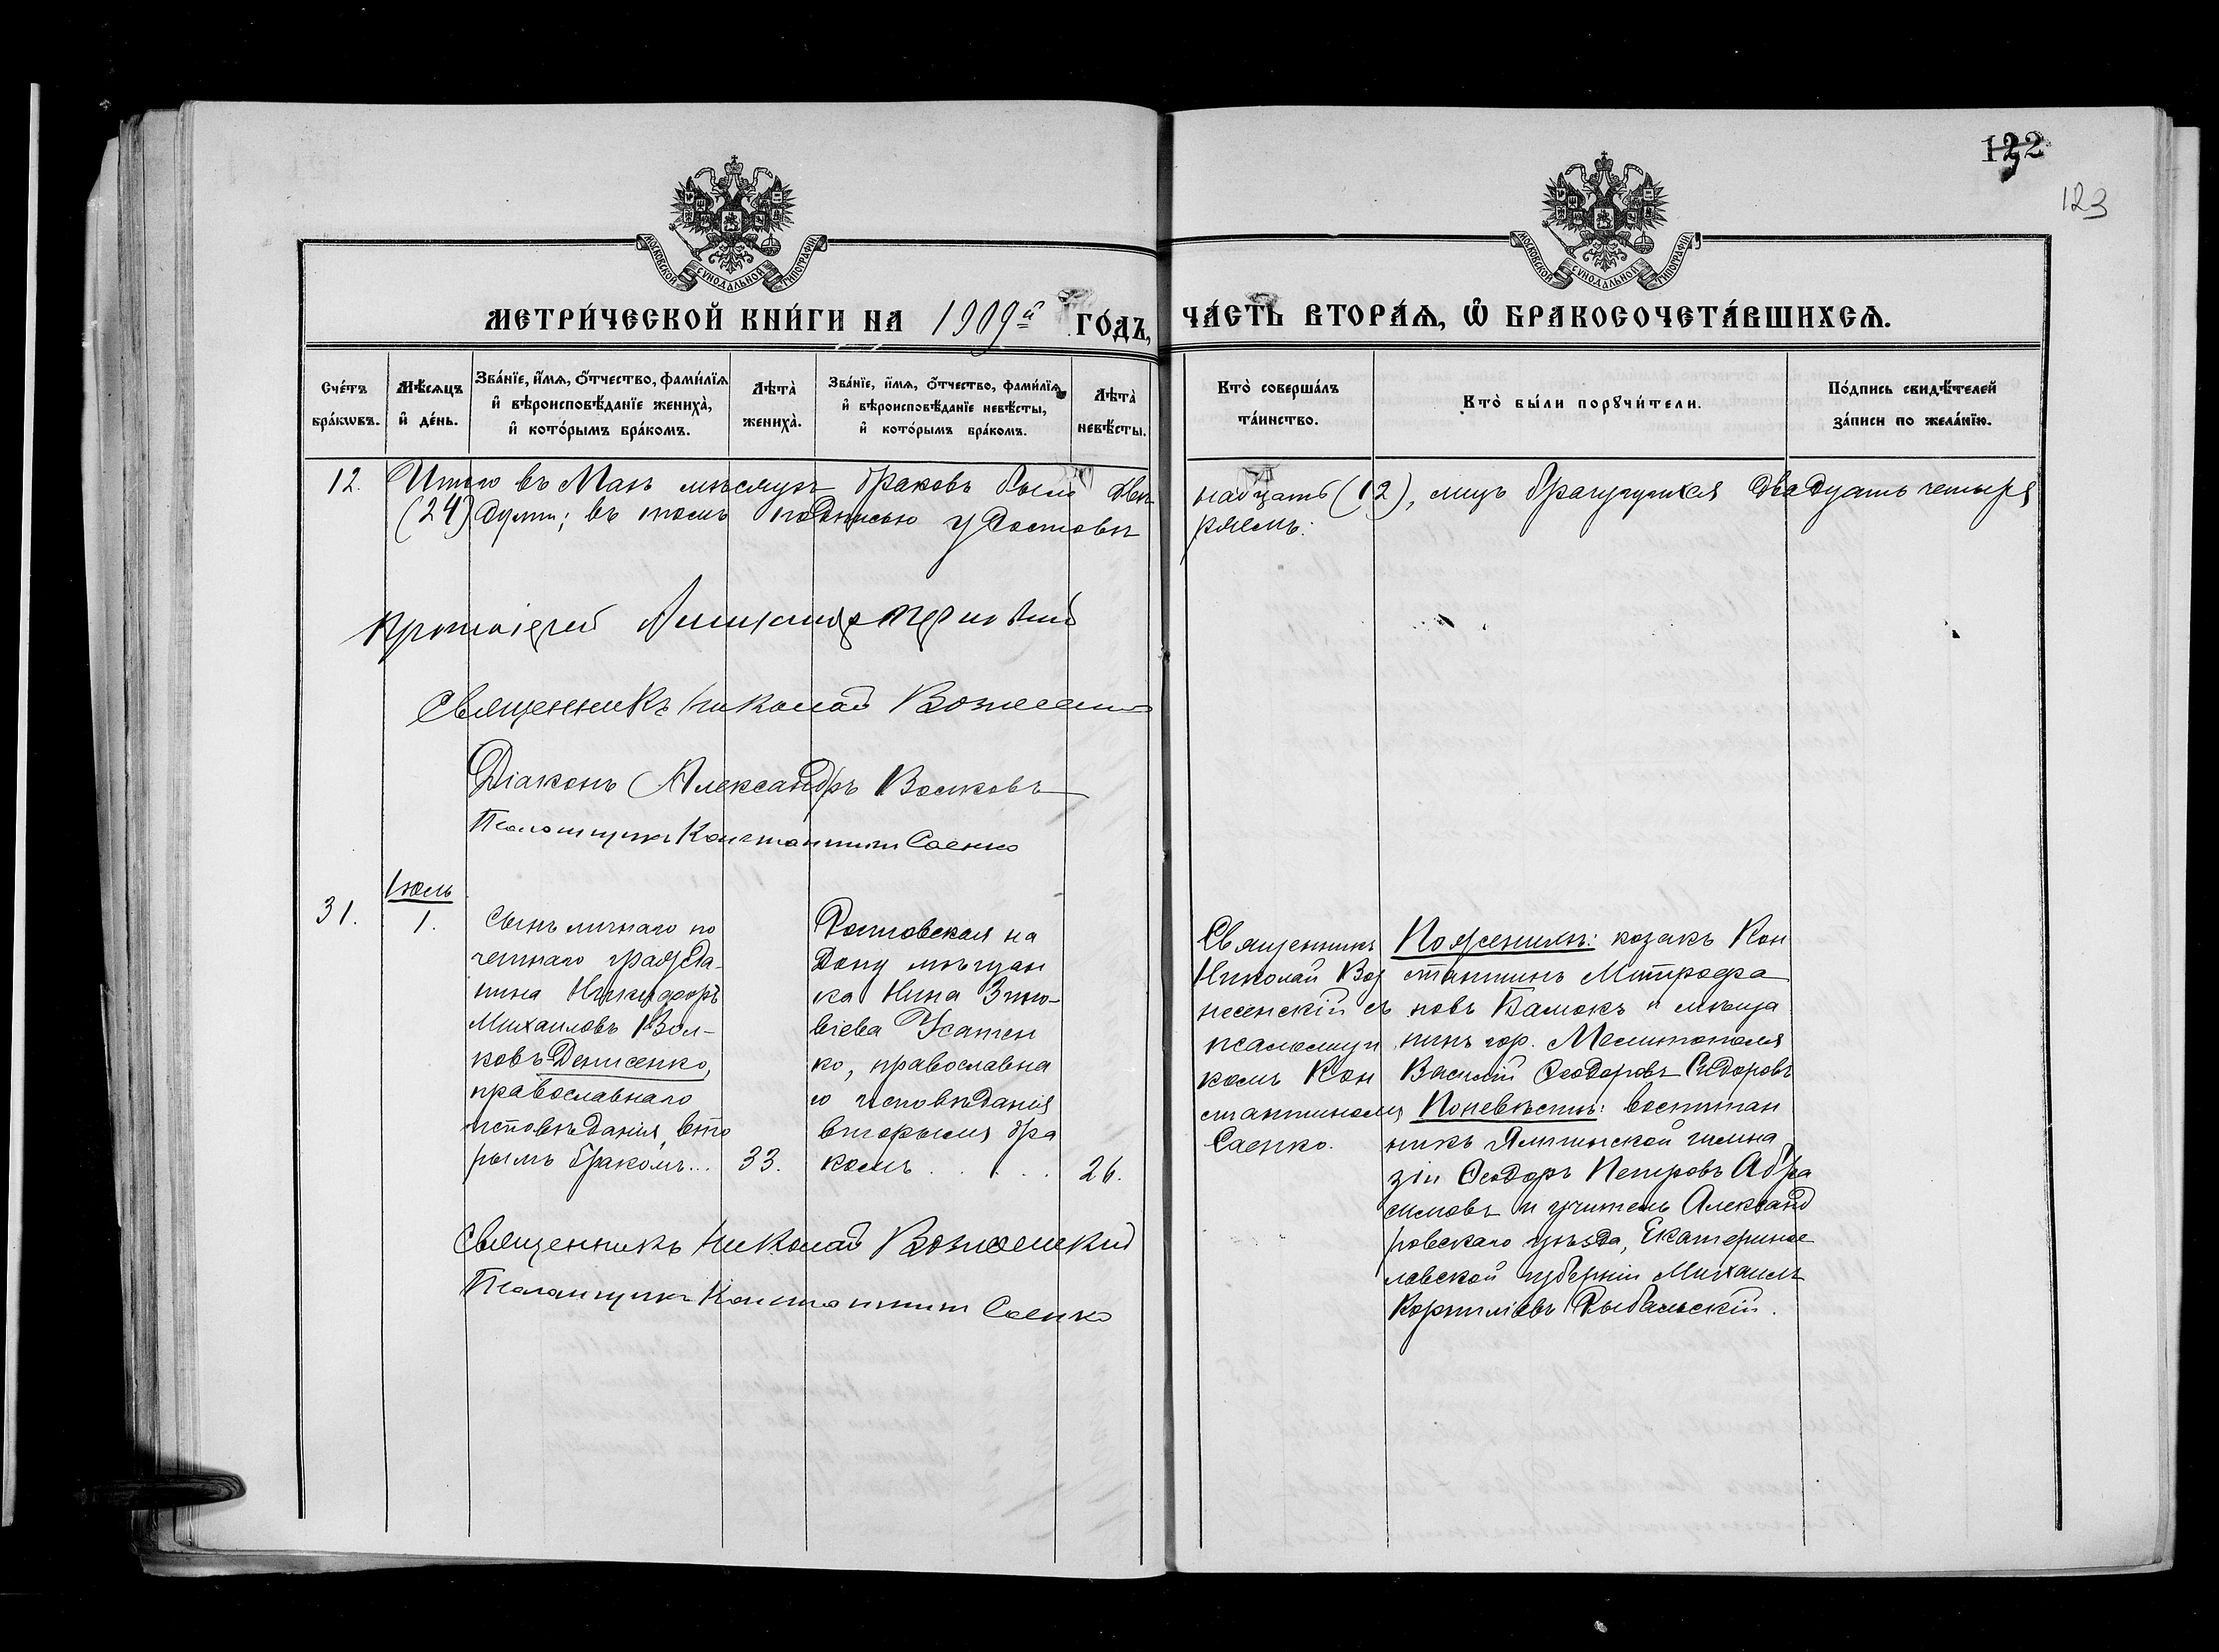 122
123
МОСКОВСКОЙ СѴНОДАЛЬНОЙ ТИПОГРАФІИ
МОСКОВСКОЙ СѴНОДАЛЬНОЙ ТИПОГРАФІИ
МЕТРИ́ЧЕСКОЙ КНИ́ГИ НА 1909й ГО́ДЪ, ЧА́СТЬ ВТОРА́Ѧ, Ѡ҆ БРАКОСОЧЕТА́ВШИХСѦ.
Счéтъ бра́кѡвъ.
Мѣ́сѧцъ и҆ де́нь.
Зва́нїе, и҆́мѧ, ѻ҆́тчество, фами́лїѧ
и҆ вѣроисповѣ́данїе жениха̀,
и҆ кото́рымъ бра́комъ.
Лѣта̀ жениха̀.
Зва́нїе, и҆́мѧ, ѻ҆́тчество, фами́лїѧ
и҆ вѣроисповѣ́данїе невѣ́сты,
и҆ кото́рымъ бра́комъ.
Лѣта̀ невѣ́сты.
Кто̀ соверша́лъ та́инство.
Кто̀ бы́ли порꙋчи́тели.
По́дпись свидѣ́телей за́писи по жела́нїю.
12. Итого въ Маѣ мѣсяцѣ браковъ было двѣ надцать (12), лицъ брачущихся двадцать четыре
(24) души; въ томъ подписью удостовѣ ряемъ:
Протоіерей
Священникъ Николай
Діаконъ Александръ Волковъ
Псаломщикъ Константинъ Саенко
Іюль
31.
1.
Сынъ личнаго по
четнаго гражда-
нина Никифоръ
Михаиловъ Вол-
ковъ-Денисенко,
православнаго
исповѣданія, вто
рымъ бракомъ...
33.
Ростовская на
Дону мѣщан
ка Нина Зино-
віева Усатен
ко, православна
го исповѣданія
вторымъ бра
комъ . . . .
26.
Священникъ
Николай Воз
несенскій съ
псаломщи
комъ Кон
стантиномъ
Саенко.
По женихѣ: козакъ Кон
стантинъ Митрофа
новъ Балюкъ и мѣща
нинъ гор. Мелитополя
Василій Ѳеодоровъ Сидоровъ
По невѣстѣ: воспитан
никъ Ялтинской гимна
зіи Ѳеодоръ Петровъ Абра
симовъ и учитель Александ
ровскаго уѣзда, Екатеринос
лавской губерніи Михаилъ
Корниліевъ Рыбальскій.
Священникъ Николай Вознесенскій
Псаломщикъ Константинъ Саенко